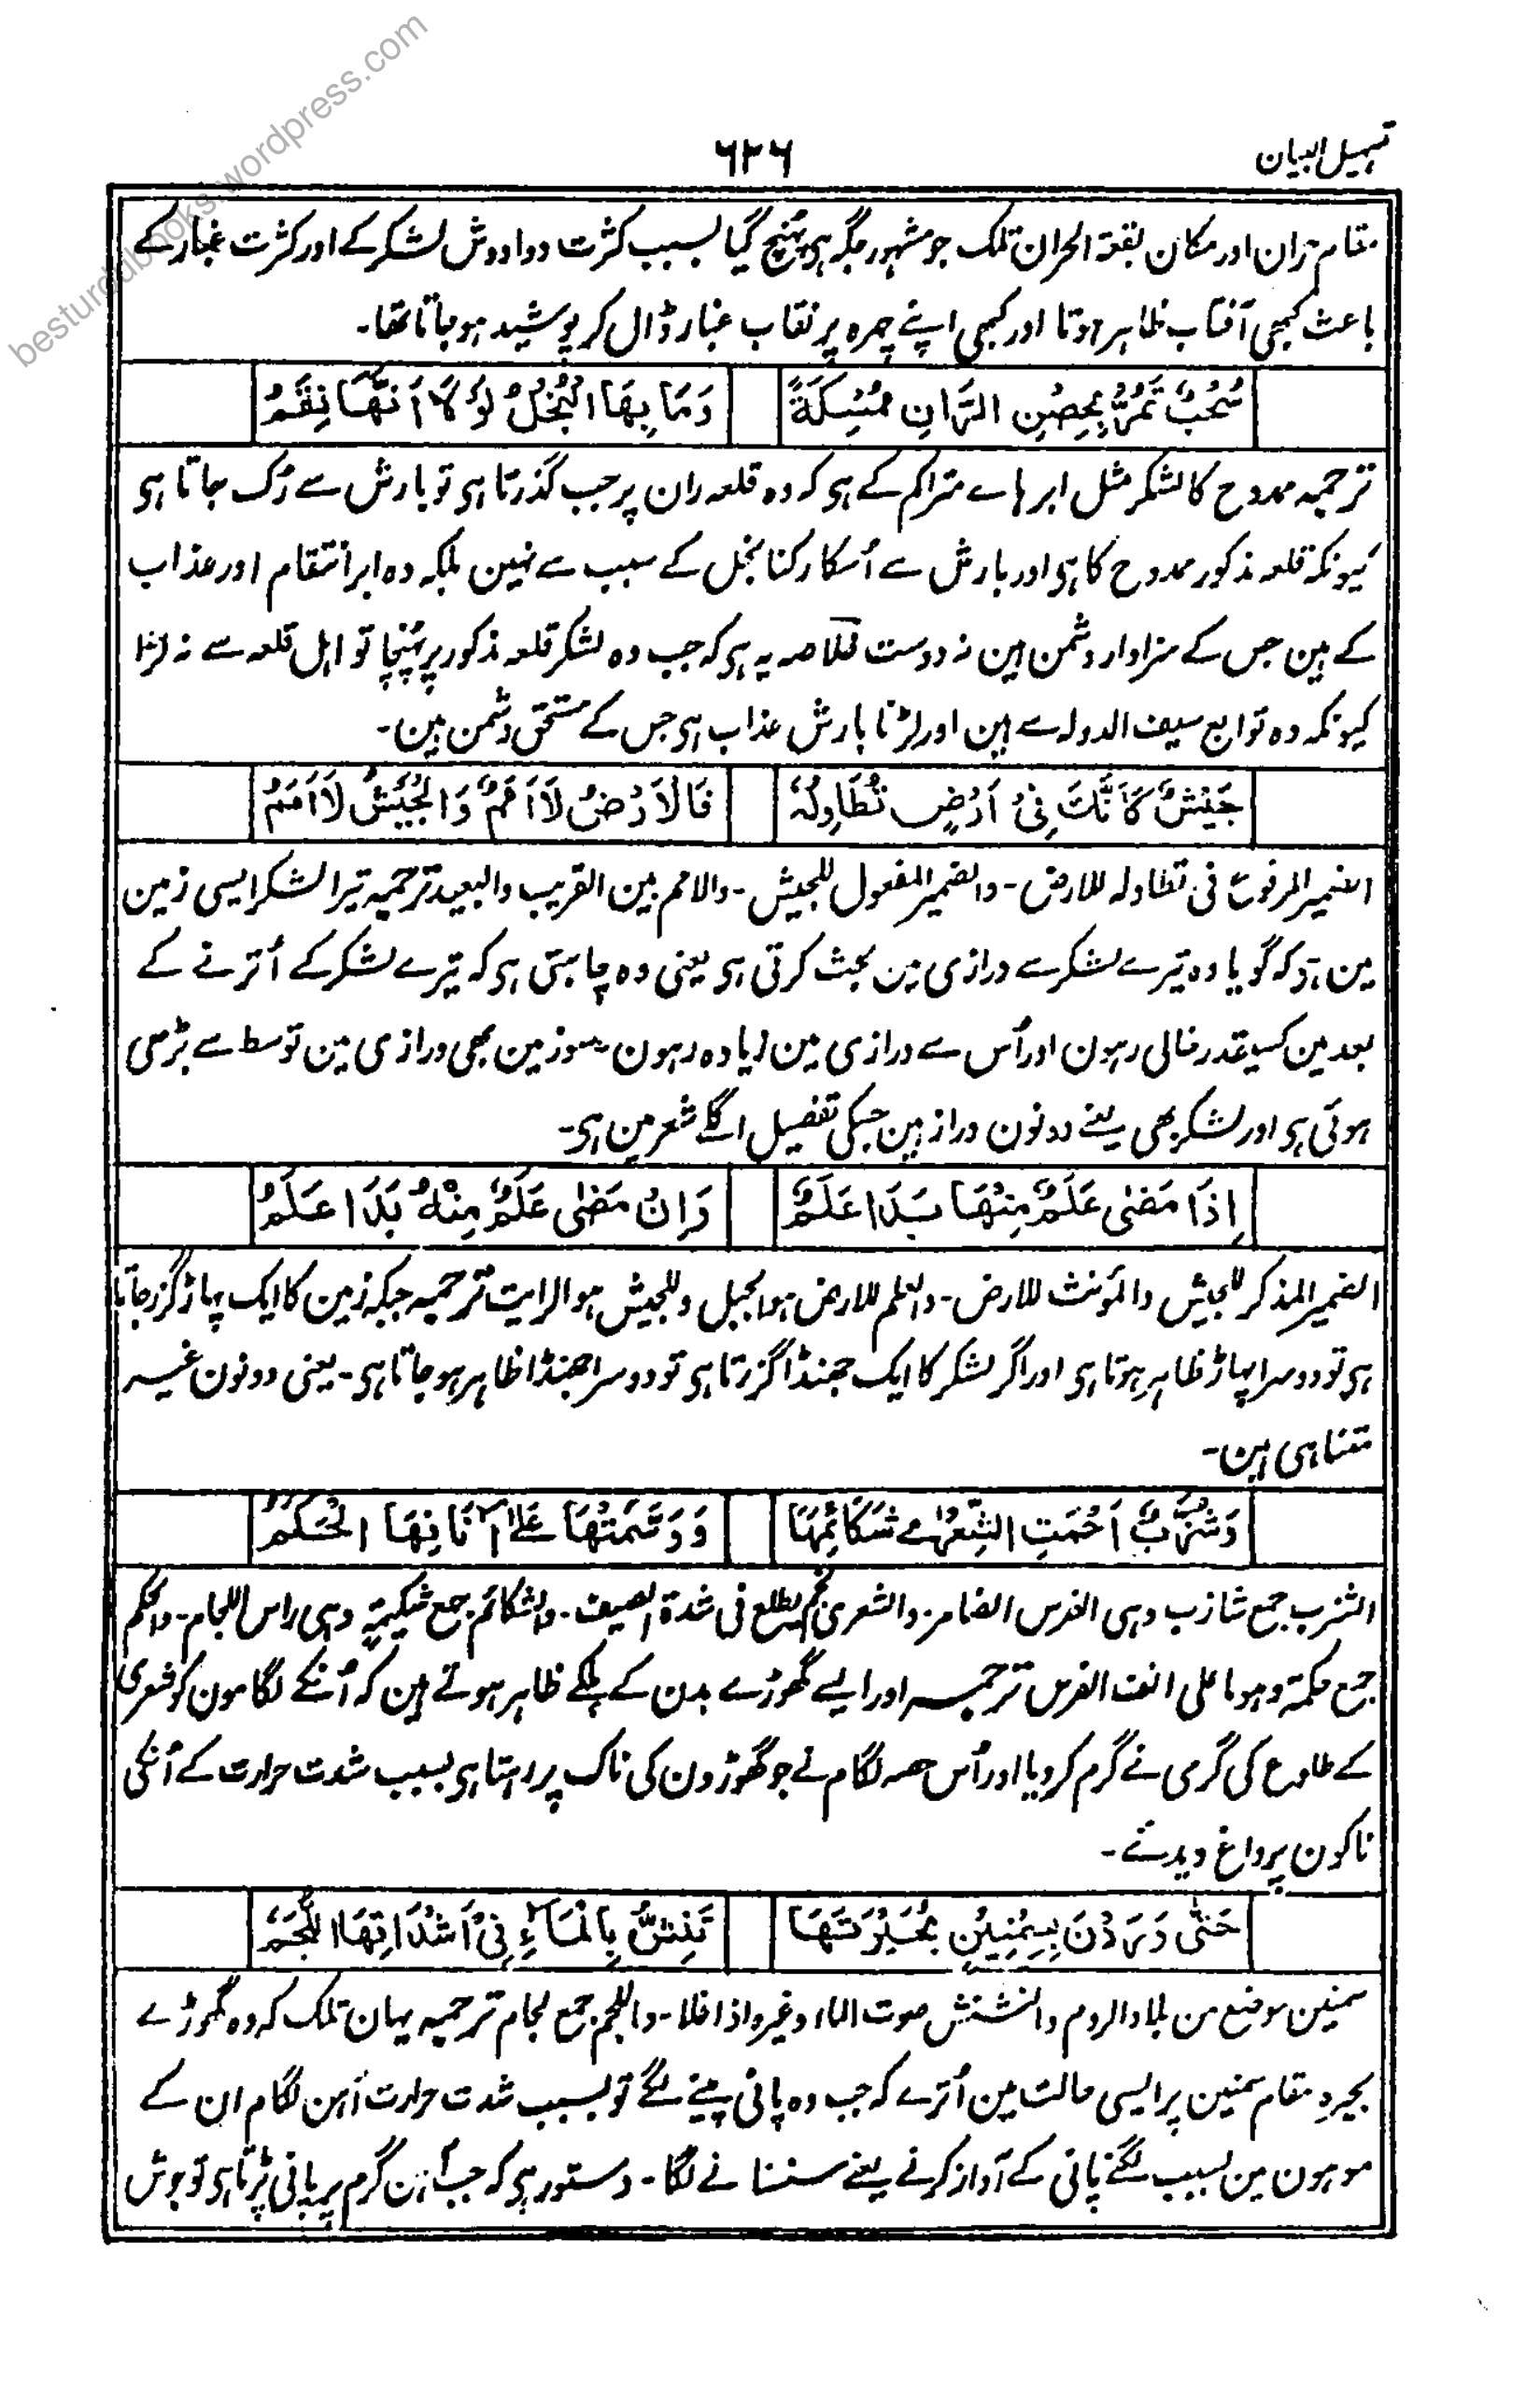 تسہیل البیان
۶۲۶
مقام ران اور مکان بقعۃ الحران تلک جو مشہور جگہ ہی پہنچ گیا بسبب کثرت دوادوش لشکر کے اور کثرت غبار کے
باعث کبھی آفتاب ظاہر ہوتا اور کبھی اپنے چہرہ پر نقاب غبار ڈال کر پوشید ہو جاتا تھا۔
سُحُبٌ تَمُرُّ بِحِصْنِ الرَّانِ مُمْسِكَةً وَمَا بِهَا الْبُخْلُ لَوْلَا أَنَّهَا نِقَمُ
ترجمہ ممدوح کا لشکر مثل ابرہاے متراکم کے ہی کہ وہ قلعہ ران پر جب گذرتا ہی تو بارش سے رُک جاتا ہی
کیونکہ قلعہ مذکور ممدوح کا ہی اور بارش سے اُسکا رکنا بخل کے سبب سے نہین بلکہ وہ ابر انتقام اور عذاب
کے ہین جس کے سزاوار دشمن ہین نہ دوست خلاصہ یہ ہی کہ جب وہ لشکر قلعہ مذکور پر پہنچا تو اہل قلعہ سے نہ لڑا
کیونکہ وہ توابع سیف الدولہ سے ہین اور لڑنا بارش عذاب ہی جس کے مستحق دشمن ہین۔
جَيْشٌ كَأَنَّكَ فِي أَرْضٍ تُطَاوِلُهُ فَالْأَرْضُ لَا أَمَمٌ وَالْجَيْشُ لَا أَمَمُ
الضمیر المرفوع فی تطاولہ للارض۔ والضمیر المفعول للجیش۔ والامم بین القریب والبعید ترجمہ تیرا لشکر ایسی زمین
مین ہی کہ گویا وہ تیرے لشکر سے درازی مین بحث کرتی ہی یعنی وہ چاہتی ہی کہ تیرے لشکر کے اُترنے کے
بعد مین کسیقدر خالی رہون اور اُس سے درازی مین زیادہ رہون سو زمین بھی درازی مین توسط سے بڑھی
ہوئی ہی اور لشکر بھی یعنے دونون دراز ہین جسکی تفصیل اگلے شعر مین ہی۔
إِذَا مَضٰى عَلَمٌ مِنْهَا بَدَا عَلَمٌ وَإِنْ مَضٰى عَلَمٌ مِنْهُ بَدَا عَلَمُ
الضمیر المذکر للجیش والمؤنث للارض۔ والعلم للارض ہو الجبل وللجیش ہو الرایت ترجمہ جبکہ زمین کا ایک پہاڑ گزر جاتا
ہی تو دوسرا پہاڑ ظاہر ہوتا ہی اور اگر لشکر کا ایک جھنڈا گزرتا ہی تو دوسرا جھنڈا ظاہر ہو جاتا ہی۔ یعنی دونون غیر
متناہی ہین۔
وَشُزَّبٌ أَحْمَتِ الشِّعْرٰى شَكَائِمَهَا وَوَسَّمَتْهَا عَلٰى آنَافِهَا الْحَكَمُ
الشزب جمع شازب وہی الفرس الضامر۔ والشعری نجم یطلع فی شدۃ الصیف۔ والشکائم جمع شکیمۃ وہی راس اللجام۔ والحکم
جمع حکمۃ وہو ما علی انف الفرس ترجمہ اور ایسے گھوڑے بدن کے ہلکے ظاہر ہوتے ہین کہ اُنکے لگامون کو شعری
کے طلوع کی گرمی نے گرم کر دیا اور اُس حصہ لگام نے جو گھوڑون کی ناک پر رہتا ہی بسبب شدت حرارت کے اُنکی
ناکون پر داغ دیدئے۔
حَتّٰى وَرَدْنَ بِسِمْنِيْنٍ بُحَيْرَتَهَا تَنِشُّ بِالْمَاءِ فِي أَشْدَاقِهَا اللُّجُمُ
سمنین موضع من بلاد الروم والنشنش صوت الماء وغیرہ اذا غلا۔ واللجم جمع لجام ترجمہ یہان تلک کہ وہ گھوڑے
بحیرہ مقام سمنین پر ایسی حالت مین اُترے کہ جب وہ پانی پینے لگے تو بسبب شدت حرارت آہن لگام ان کے
موہون مین بسبب لگنے پانی کے آواز کرنے یعنے سنسنانے لگا۔ دستور ہی کہ جب آہن گرم پر پانی پڑتا ہی تو جوش
besturdubooks.wordpress.com